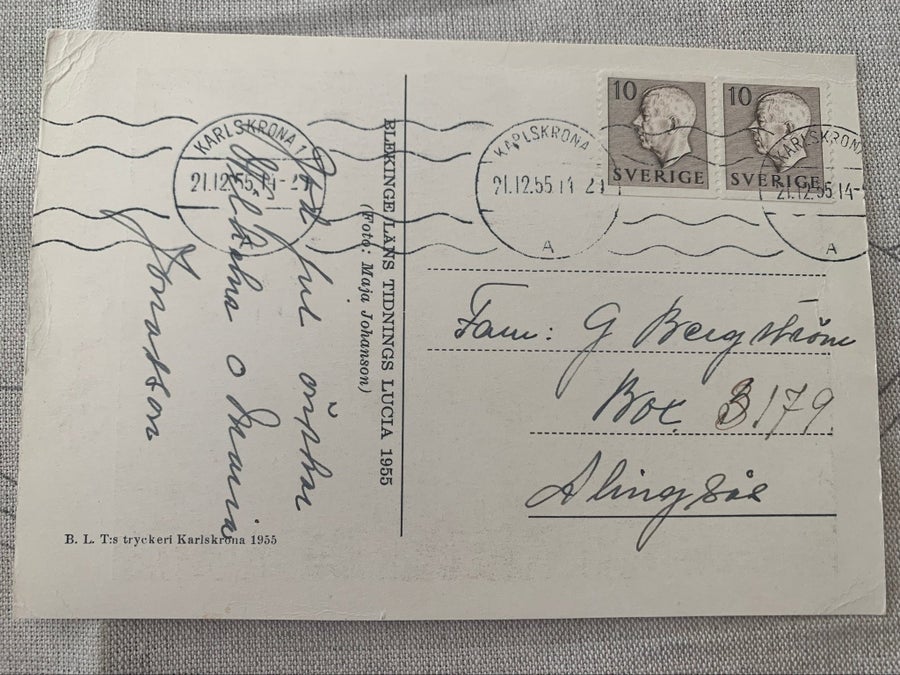 KARLSKRONA 1
21.12.55 14-21
God Jul önskar
Wilhelm o Maria
Jonasson
BLEKINGE LÄNS TIDNINGS LUCIA 1955
(Foto: Maja Johanson)
B. L. T:s tryckeri Karlskrona 1955
KARLSKRONA
21.12.55 14 21
A
10
SVERIGE
10
SVERIGE
KARLSKRONA
21.12.55 14-
A
Fam: G Bergström
Box 3179
Alingsås